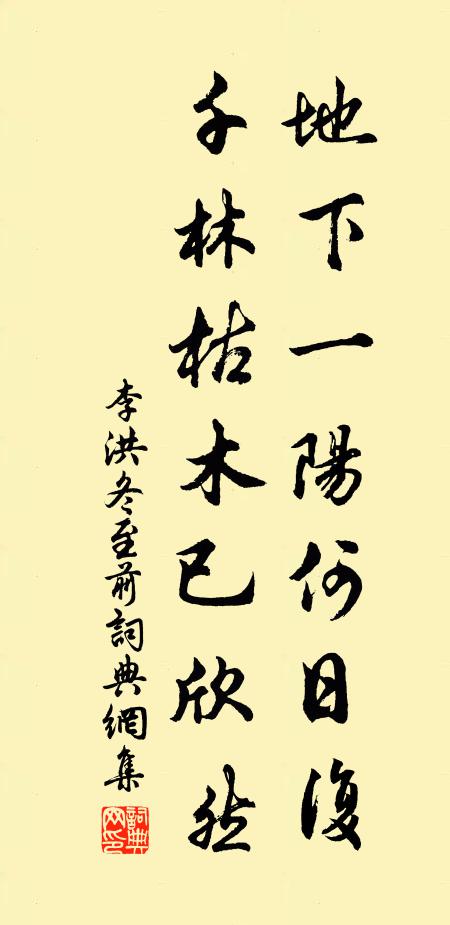 地下一陽何日復
千林枯木已欣然
李洪冬至前詞典網集
詞典網印